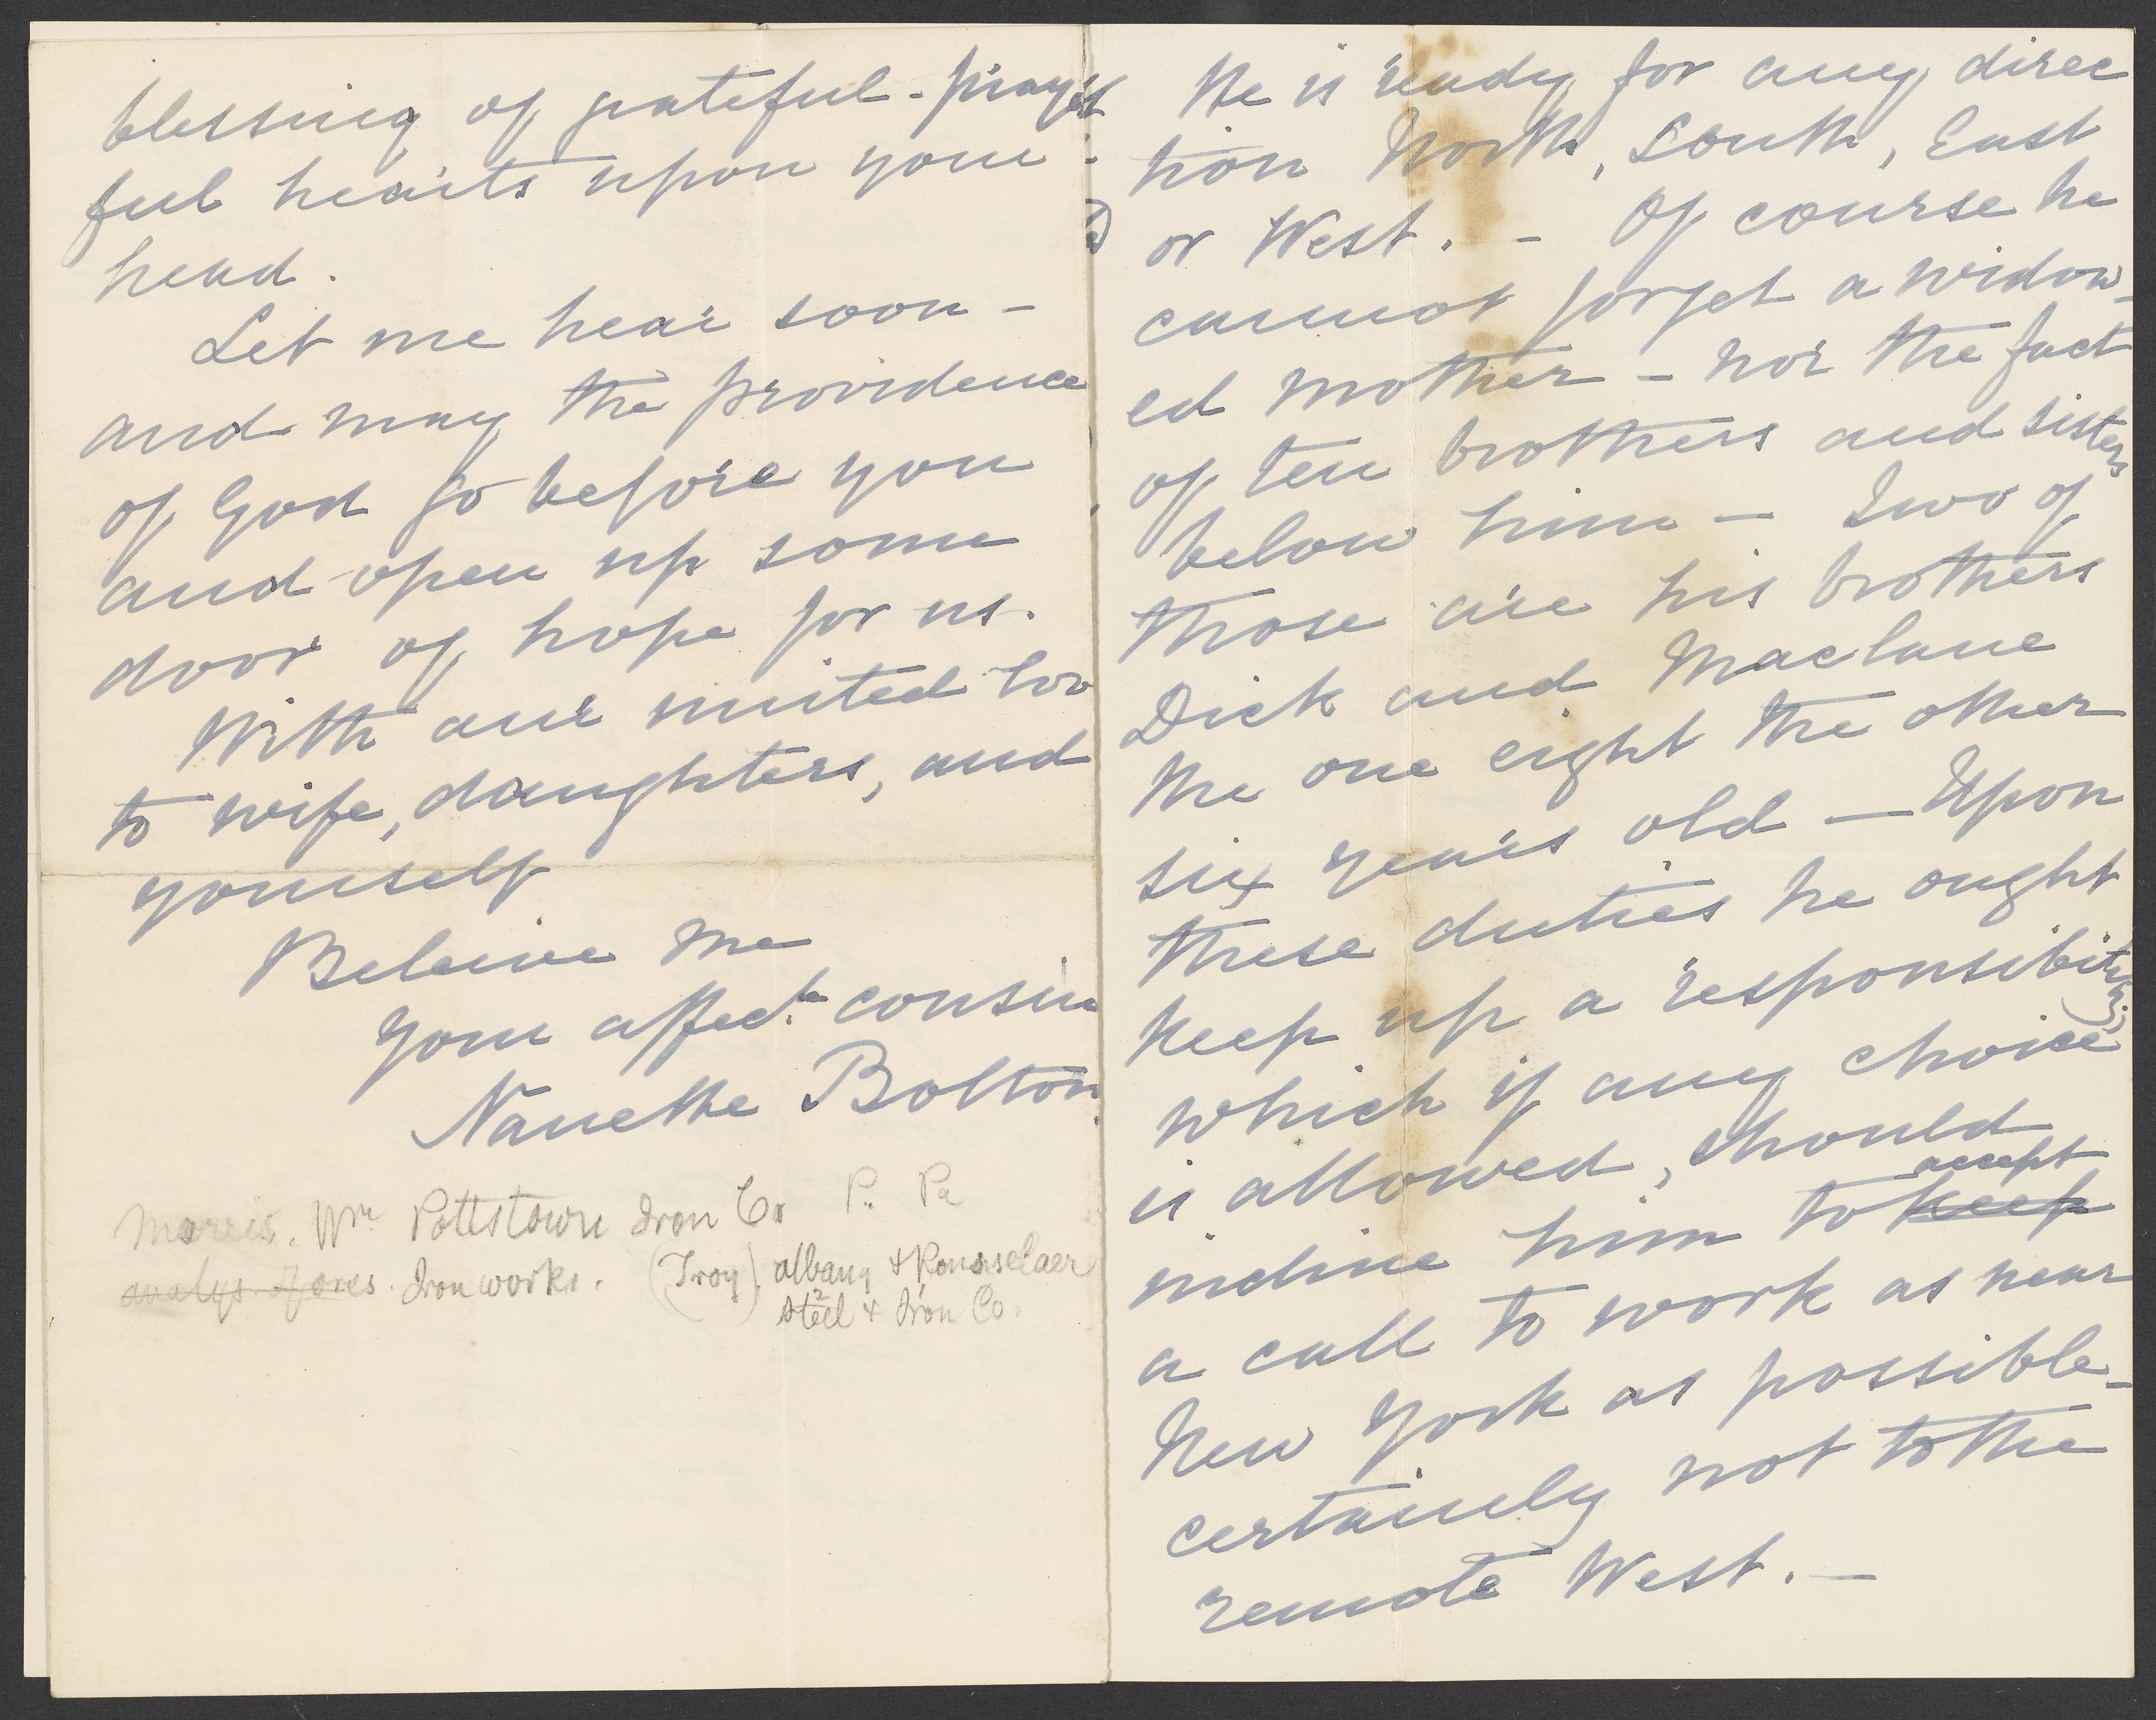 blessing of grateful - prayer
ful hearts upon your -
head.
Let me hear soon -
and may the providence
of God go before you
and open up some
door of hope for us.
With our united lov
to wife, daughters, and
yourself
Beleive me
Your affec.te cousin
Nanette Bolton.
Morris. Wm Pottstown Iron Co P. Pa
analys. of ores. Iron works. (Troy) albany & Rensselaer
steel & Iron Co.
He is ready for any direc
tion North, South, East
or West. - Of course he
cannot forget a widow-
ed mother - nor the fact
of ten brothers and sisters
below him - Two of
those are his brothers
Dick and Maclane
the one eight the other
six years old - Upon
these duties he ought
keep up a responsibility;
which if any choice
is allowed, should
incline him to keep accept
a call to work as near
New York as possible -
certainly not to the
remote West. -